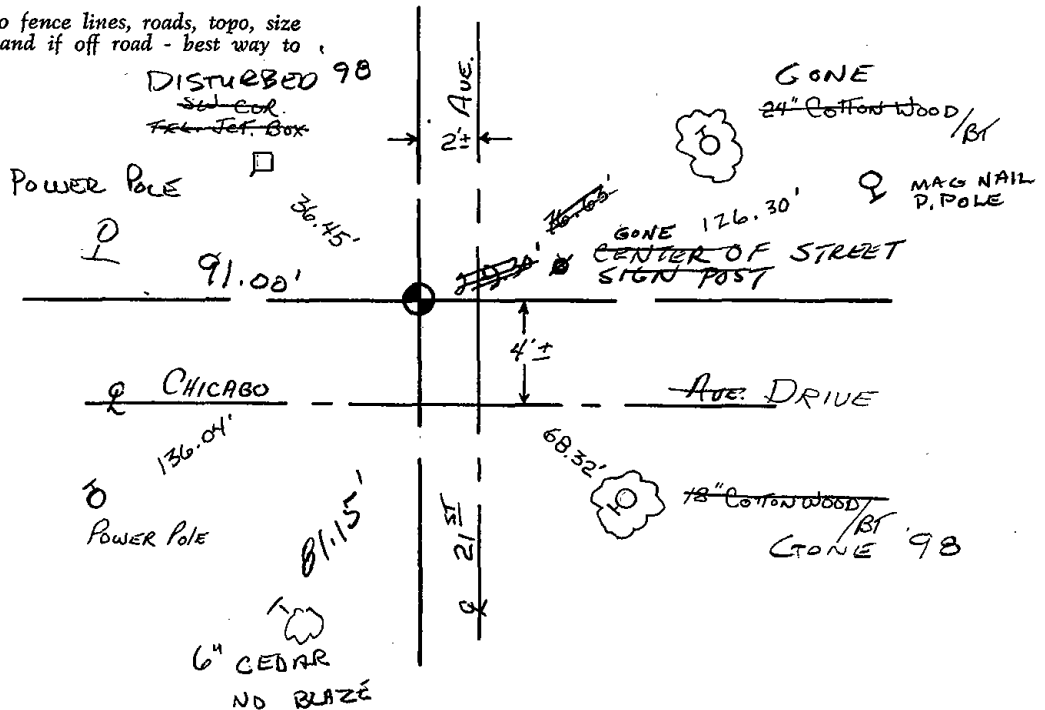 o fence lines, roads, topo, size
and if off road - best way to
DISTURBED 98
SW COR.
TEL. JCT. BOX
AVE.
2'±
GONE
24" COTTON WOOD/BT
POWER POLE
36.45'
126.30'
MAG NAIL
P. POLE
GONE
CENTER OF STREET
SIGN POST
91.00'
4'±
℄ CHICAGO
AVE. DRIVE
136.04'
68.32'
POWER POLE
81.15'
21ST
℄
18" COTTONWOOD/BT
GONE '98
6" CEDAR
NO BLAZE